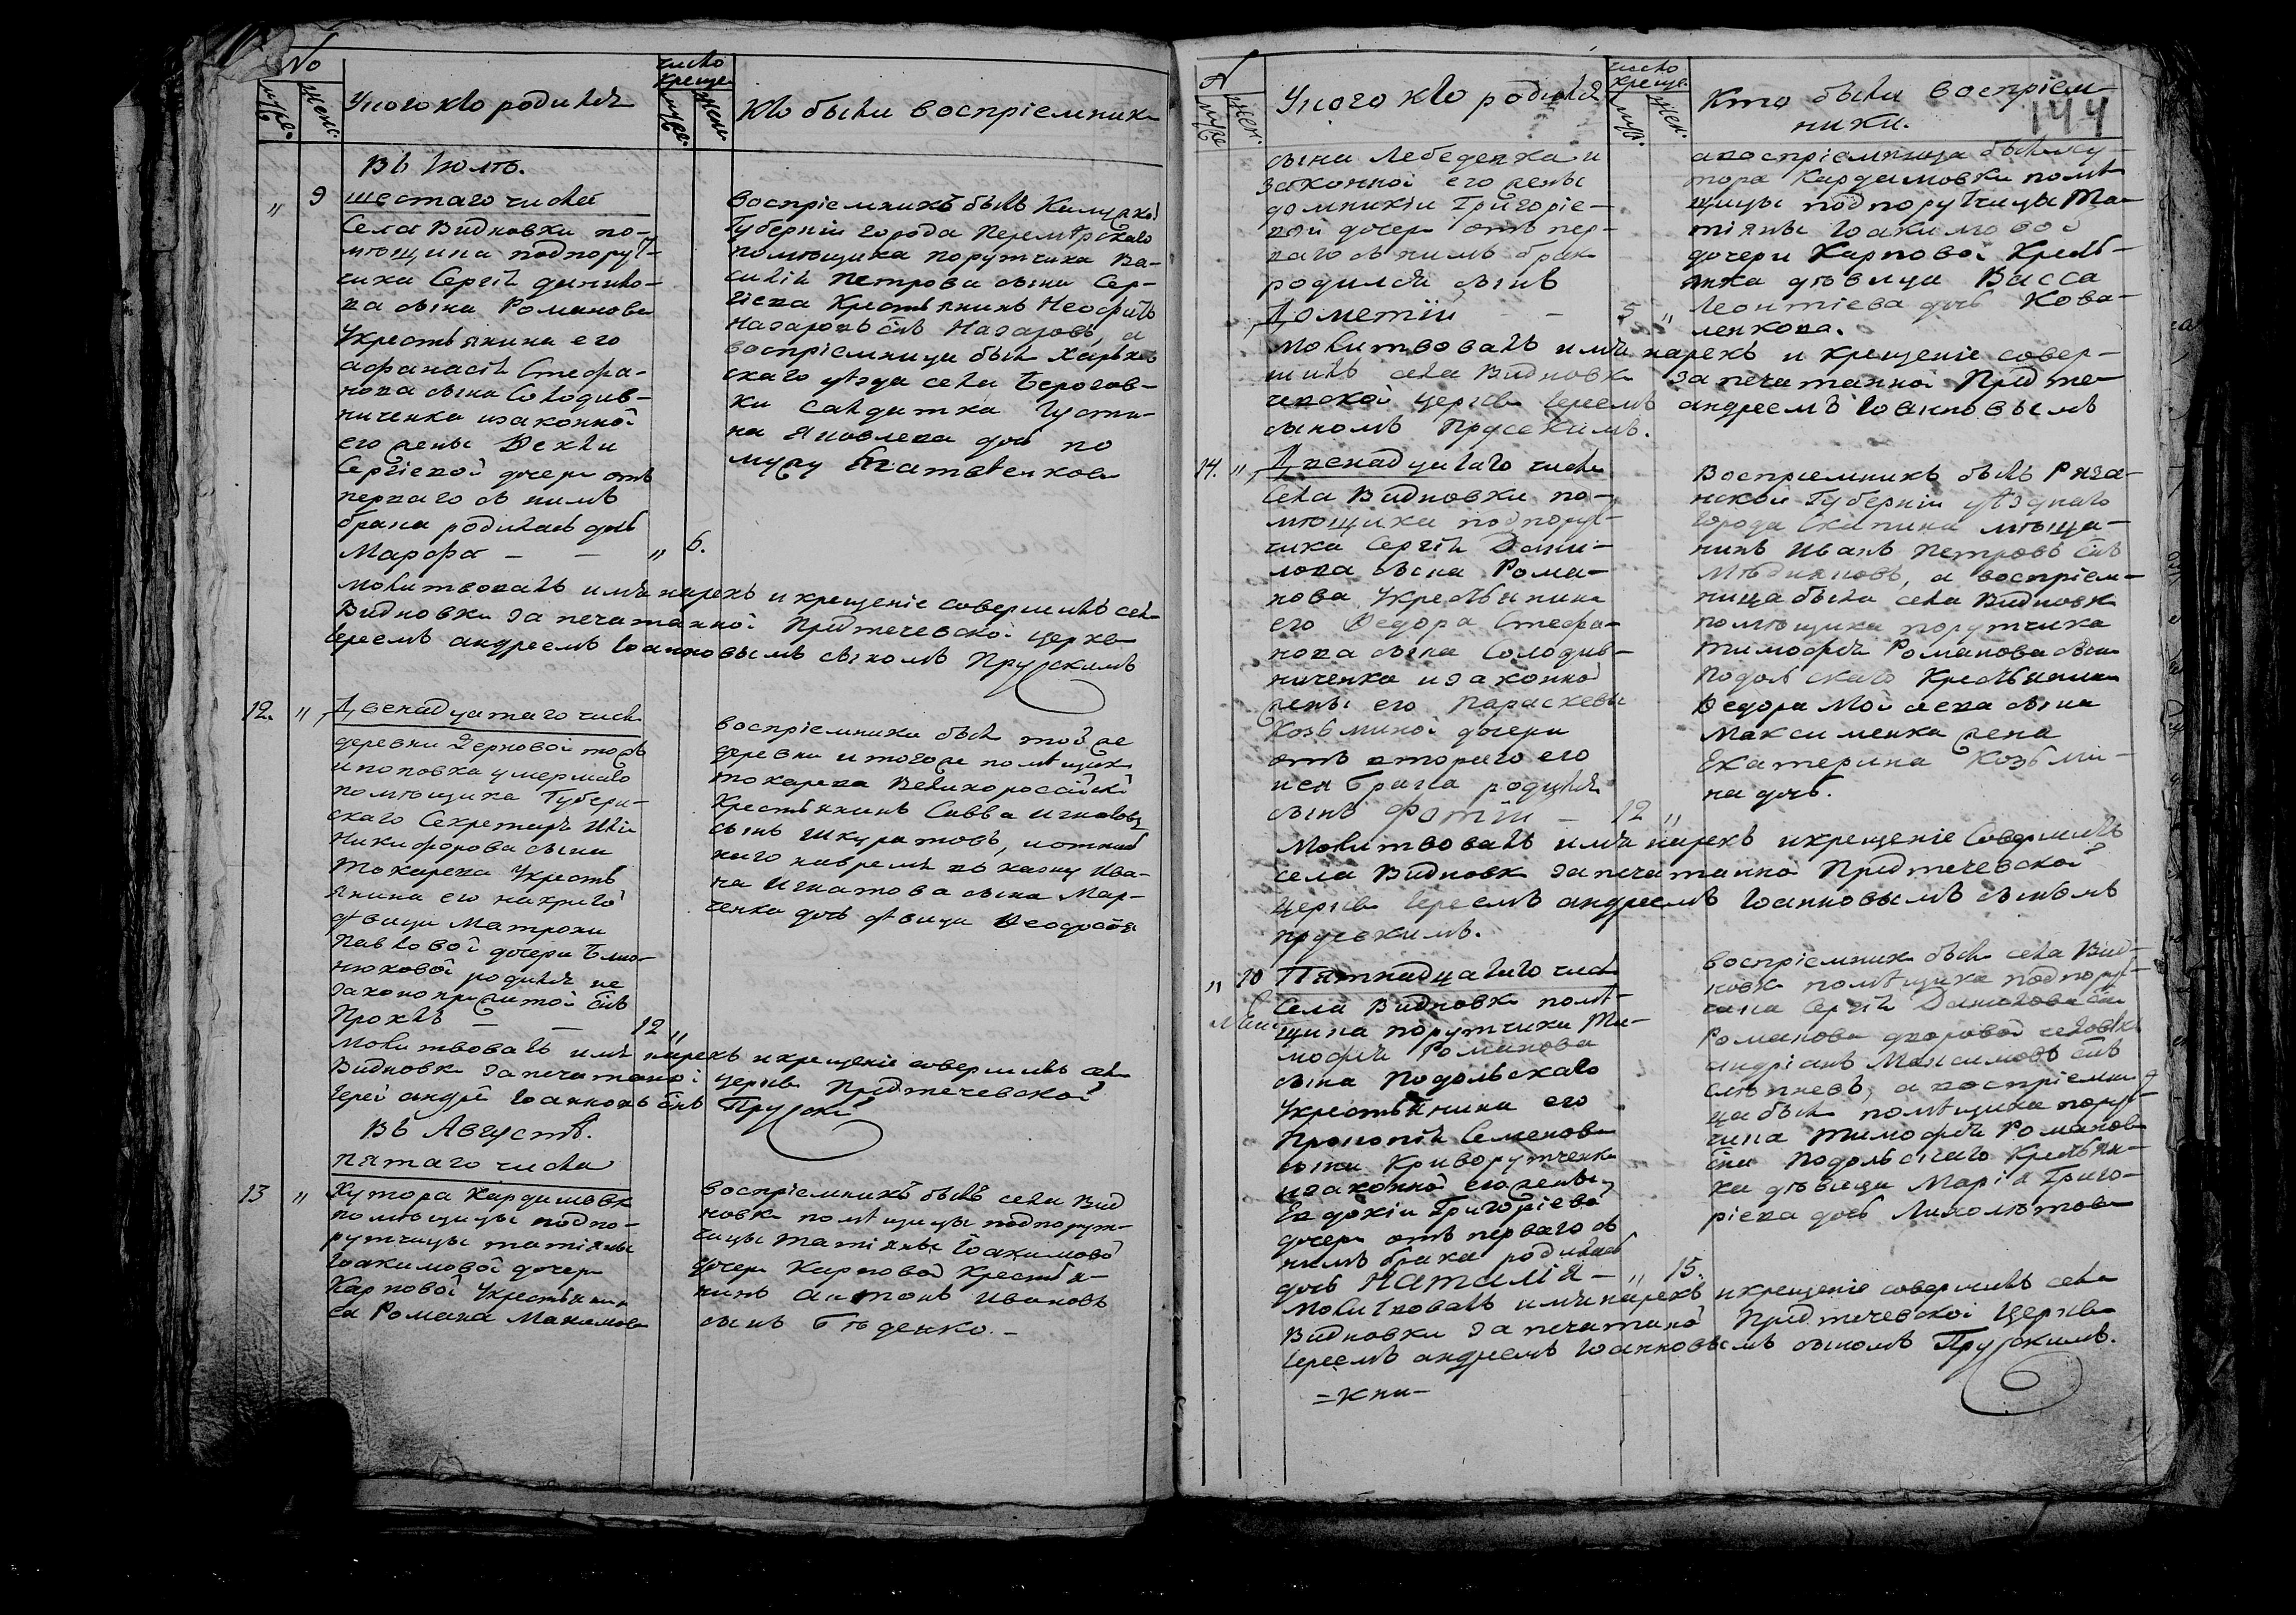 No
муже.
женс.
У кого кто родился
число
креще
муже.
жен.
Кто были восприемники
Въ Июлѣ.
" 9 шестаго числа
Села Видновки по-
мѣщика подпорут-
чика Сергѣя Данило-
ва сына Романова
у крестьянина его
афанасія Стефа-
нова сына Солодив-
ниченка и законной
его жены Феклы
Сергіевой дочери отъ
перваго съ нимъ
брака родилась дочь
Марфа — — " 6.
Восприемникъ былъ Калужской
Губерніи города Перемышскаго
помѣщика порутчика Ва-
силія Петрова сына Сер-
гіева Крестьянинъ Неофитъ
Назаровъ сынъ Назаровъ, а
восприемница была Харьков
скаго уѣзда села
ки салдатка Іусти-
на Яковлева дочь по
мужу
молитвовалъ имя нарекъ и крещеніе совершилъ села
Видновки запечатанной Предтечевской церкви
Іереемъ андреемъ Іоанновымъ сыномъ Прускимъ
12. " Двенадцатаго числа
деревни Терновой тожъ
и поповка умершаго
помѣщика Губерн-
скаго Секретаря Ильи
Никифорова сына
Токарева у крестья
янина его
дѣвицы матроны
Павловой дочери
родился не
законоприжитой сынъ
Прохлъ — — 12 "
восприемники были той же
деревни и того же помѣщика
токарева Великороссійскій
Крестьянинъ Савва Игнатовъ
сынъ Шкуратовъ,
наго навремя въ казну Ива-
на Игнатова сына Мар-
ченка дочь дѣвица Феодосія
Молитвовалъ имя нарекъ и крещеніе совершилъ села
Видновки запечатаной церкви Предтечевской
Іерей андрей Іоанновъ сынъ Пруской
Въ Августѣ.
пятаго числа
13 " Хутора Кардашовки
помѣщицы подпо-
рутчицы татіяны
Іоакимовой дочери
Карповой у крестьянина
са Романа Макимова
восприемникъ былъ села Вид
новки помѣщицы подпорут-
чицы татіяны Іоакимовой
дочери Карповой Крестья-
нинъ антонъ Ивановъ
сынъ Бѣденко.—
N
муже
жен.
У кого кто родился
число
креще.
муж.
жен.
Кто были восприем-
ники.
144
сына Лебеденка и
законной его жены
домникіи Григоріе-
вой дочери отъ пер-
ваго съ нимъ брака
родился сынъ
Дометій — — 5 "
а восприемница была ху-
тора Кардашовки помѣ-
щицы подпорутчицы Та-
тіяны Іоакимовой
дочери Карповой Кресть-
янка дѣвица Васса
Леонтіева дочь Кова-
ленкова.
Молитвовалъ имя нарекъ и крещеніе совер-
шилъ села Видновки запечатанной Предте-
чевской церкви Іереемъ андреемъ Іоанновымъ
сыномъ Прускимъ.
14. " Двенадцатаго числа
Села Видновки по-
мѣщика подпорут-
чика Сергѣя Дани-
лова сына Рома-
нова у крестьянина
его Федора Стефа-
нова сына Солодив-
ниченка и законной
жены его Параскевы
Козьминой дочери
отъ втораго его
нея брака родился
сынъ Фотій — 12 "
Восприемникъ былъ Ряза-
нской Губерніи уѣзднаго
города Скапина мѣща-
нинъ Иванъ Петровъ сынъ
Мѣдниковъ, а восприем-
ница была села Видновки
помѣщика порутчика
тимофея Романова сына
Подольскаго Крестьянина
Федора Мойсеева сына
Максименка жена
Екатерина Козьми-
на дочь.
Молитвовалъ имя нарекъ и крещеніе Совершилъ
села Видновки запечатанной Предтечевской
церкви Іереемъ андреемъ Іоанновымъ сыномъ
прускимъ.
" 10 Пятнадцатаго числа
Села Видновки помѣ-
щика порутчика Ти-
мофея Романова
сына Подольскаго
у крестьянина его
Прокопія Семенова
сына Криворутченка
и законной его жены
Евдокіи Григоріевой
дочери отъ перваго съ
нимъ брака родилась
дочь Наталія — " 15.
восприемникъ былъ села Вид-
новки помѣщика подпорут-
чика Сергѣя Данилова сына
Романова дворовой человѣкъ
андріянъ Максимовъ сынъ
Слѣпневъ, а восприемни
ца была помѣщика порут-
чика тимофея Романова
сына Подольскаго Крестьян-
ка дѣвица Марія Григо-
ріева дочь Лихолѣтова
Молитвовалъ имя нарекъ и крещеніе совершилъ села
Видновки запечатаной Предтечевской Церкви
Іереемъ андреемъ Іоанновымъ сыномъ Прускимъ.